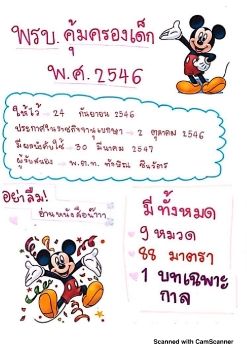 พรบ. คุ้มครองเด็ก
พ.ศ. 2546
ให้ไว้ → 24 กันยายน 2546
ประกาศในราชกิจจานุเบกษา → 2 ตุลาคม 2546
มีผลบังคับใช้ → 30 มีนาคม 2547
ผู้รับสนอง → พ.ต.ท. ทักษิณ ชินวัตร
อย่าลืม!
อ่านหนังสือน๊าาา
มีทั้งหมด
9 หมวด
88 มาตรา
1 บทเฉพาะ
กาล
Scanned with CamScanner